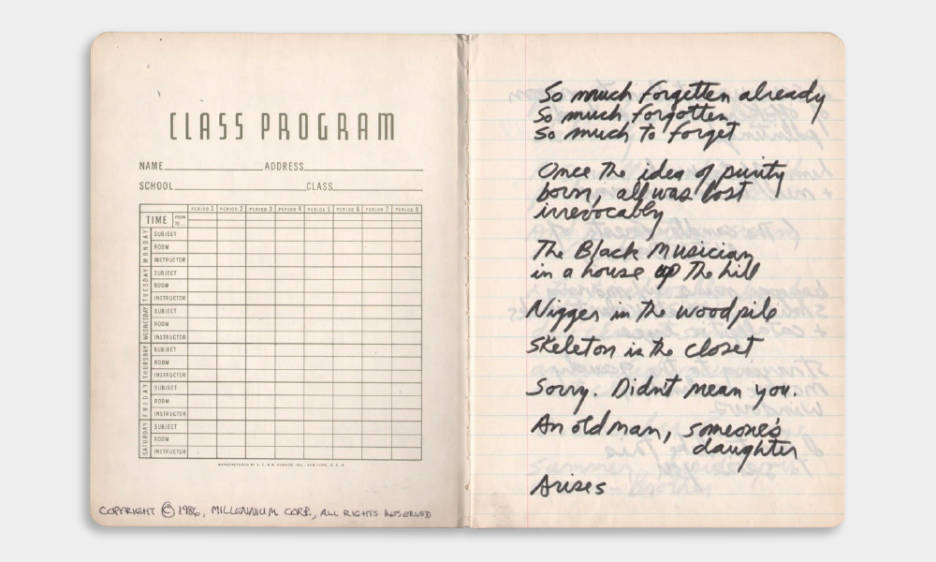 CLASS PROGRAM
NAME ADDRESS
SCHOOL CLASS
TIME FROM TO PERIOD 1 PERIOD 2 PERIOD 3 PERIOD 4 PERIOD 5 PERIOD 6 PERIOD 7 PERIOD 8
MONDAY
SUBJECT
ROOM
INSTRUCTOR
TUESDAY
SUBJECT
ROOM
INSTRUCTOR
WEDNESDAY
SUBJECT
ROOM
INSTRUCTOR
THURSDAY
SUBJECT
ROOM
INSTRUCTOR
FRIDAY
SUBJECT
ROOM
INSTRUCTOR
SATURDAY
SUBJECT
ROOM
INSTRUCTOR
MANUFACTURED BY NEW YORK, U.S.A.
COPYRIGHT © 1986, MILLENNIUM CORP., ALL RIGHTS RESERVED
So much forgotten already
So much forgotten
So much to forget
Once the idea of purity
born, all was lost
irrevocably
The Black Musician
in a house up the hill
Nigger in the woodpile
Skeleton in the closet
Sorry. Didn't mean you.
An old man, someone's
daughter
Arises